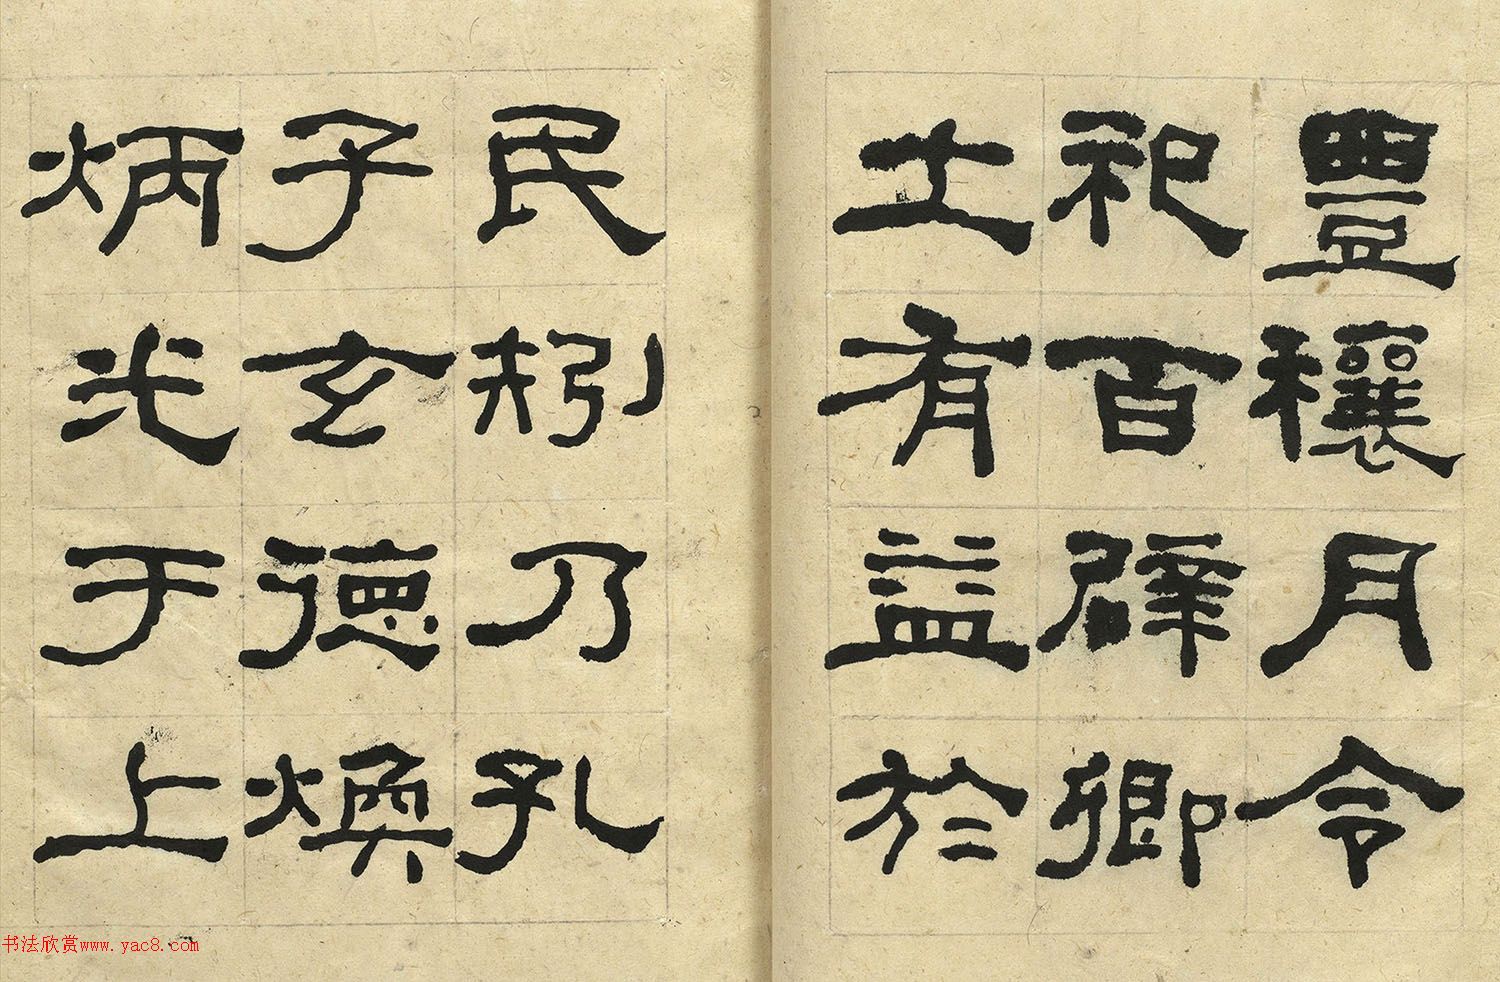 豐穰月令
祀百辟卿
士有益於
民矧乃孔
子玄德煥
炳光于上
书法欣赏www.yac8.com